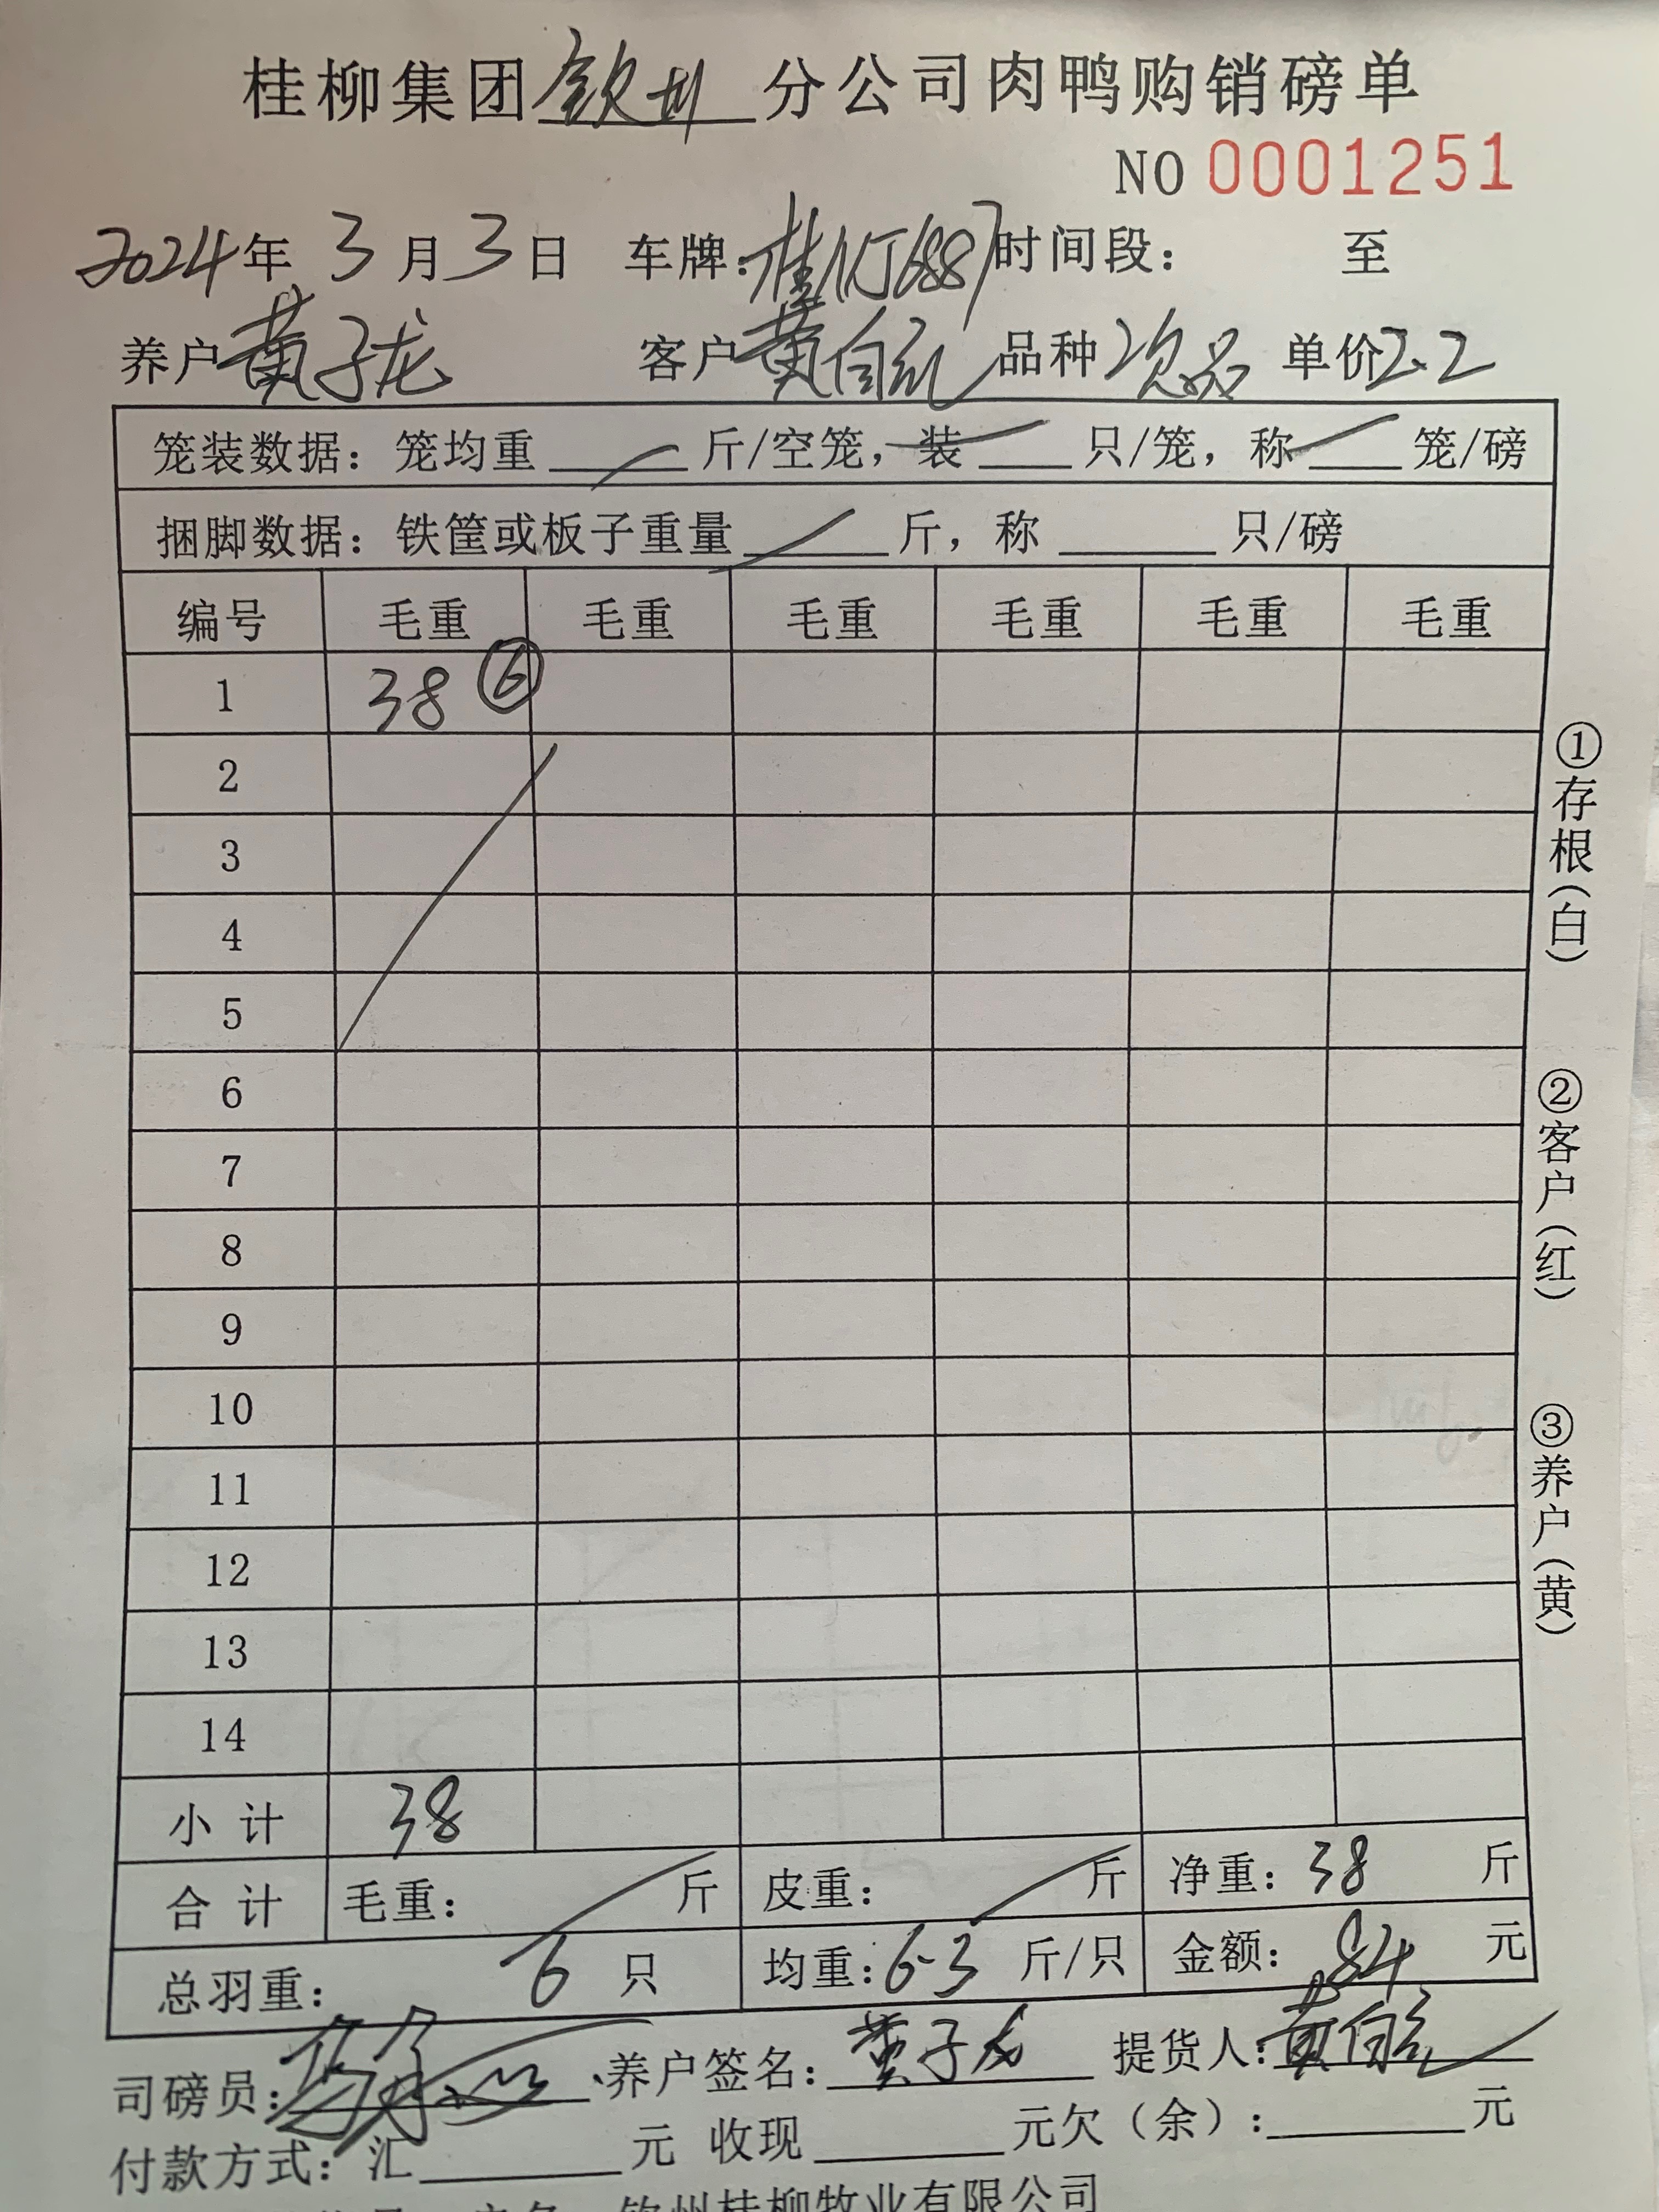 桂柳集团钦州分公司肉鸭购销磅单
NO 0001251
2024年3月3日 车牌:桂NJ6887 时间段: 至
养户 黄子龙 客户 黄自 品种 次品 单价 2.2
笼装数据: 笼均重____斤/空笼, 装____只/笼, 称____笼/磅
捆脚数据: 铁筐或板子重量____斤, 称____只/磅
编号 毛重 毛重 毛重 毛重 毛重 毛重
1 38 ⑥
2
3
4
5
6
7
8
9
10
11
12
13
14
小计 38
合计 毛重: 斤 皮重: 斤 净重: 38 斤
总羽重: 6 只 均重: 6.3 斤/只 金额: 84 元
司磅员: 养户签名: 黄子龙 提货人: 黄自
付款方式: 汇____元 收现____元欠(余):____元
钦州桂柳牧业有限公司
①存根(白)
②客户(红)
③养户(黄)